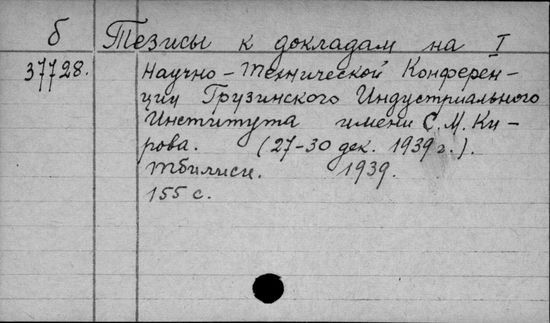 б Тезисы к докладам на I
37728. Научно-технической Конферен-
ции Грузинского Индустриального
Института имени С. М. Ки-
рова. (27-30 дек. 1939 г.).
Тбилиси. 1939.
155 с.